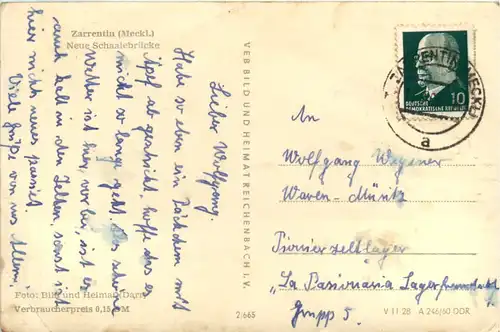 Zarrentin (Meckl.)
Neue Schaalebrücke
Lieber Wolfgang.
Habe so eben ein Päckchen mit
Äpf. ab geschickt, hoffe das es
nicht so lange geht. Das schöne
Wetter ist hier vorbei, ist es
auch kalt in den Zelten, sonst ist
hier nichts neues passiert.
Viele Grüße von uns Allen.
Foto: Bild und Heimat (Darr)
Verbraucherpreis 0,15 DM
VEB BILD UND HEIMAT REICHENBACH I. V.
2/665
DEUTSCHE
DEMOKRATISCHE REPUBLIK
10
ZARRENTIN (MECKL)
a
An
Wolfgang Wegener
Waren-Müritz
Pionierzeltlager
"La Pasionaria Lagerfreundschaft
Grupp 5.
V 11 28 A 246/60 DDR